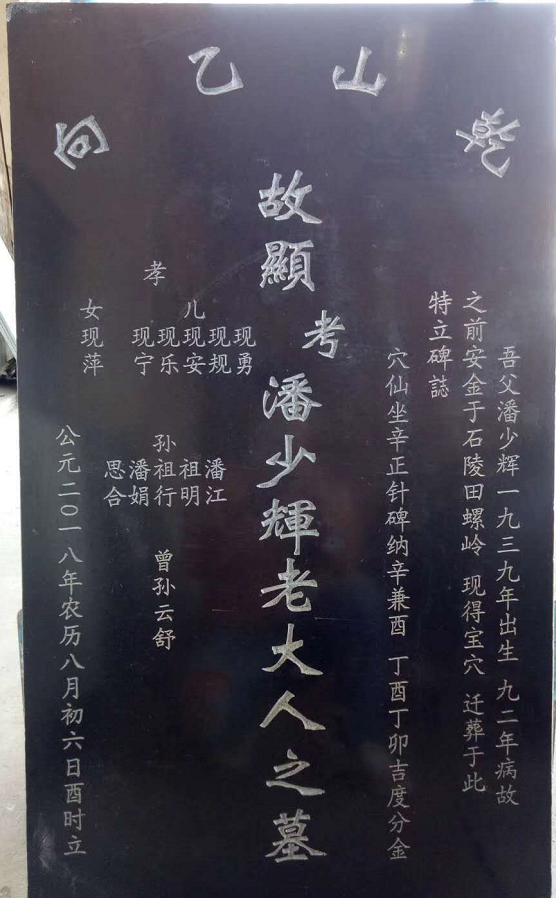 乾山乙向
吾父潘少辉一九三九年出生 九二年病故
之前安金于石陵田螺岭 现得宝穴 迁葬于此
特立碑誌
穴仙坐辛正针碑纳辛兼酉 丁酉丁卯吉度分金
故顯考潘少輝老大人之墓
孝
儿
现勇
现规
现安
现乐
现宁
女现萍
孙
潘江
祖明
祖行
潘娟
思合
曾孙云舒
公元二〇一八年农历八月初六日酉时立